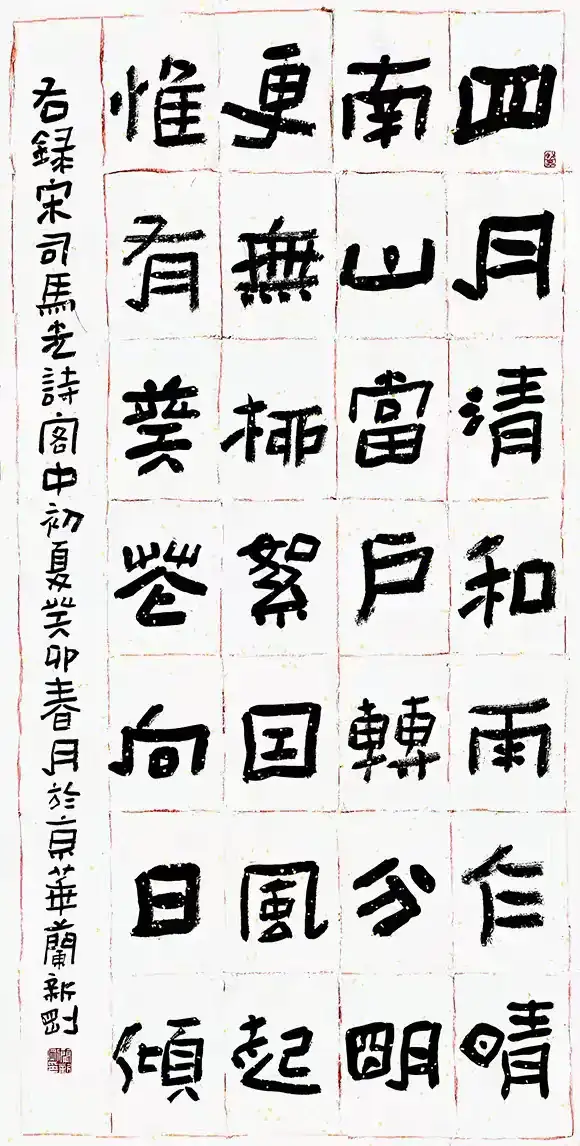 四月清和雨乍晴
南山當户轉分明
更無柳絮因風起
惟有葵花向日傾
右録宋司馬光詩客中初夏癸卯春月於京華蘭新剛